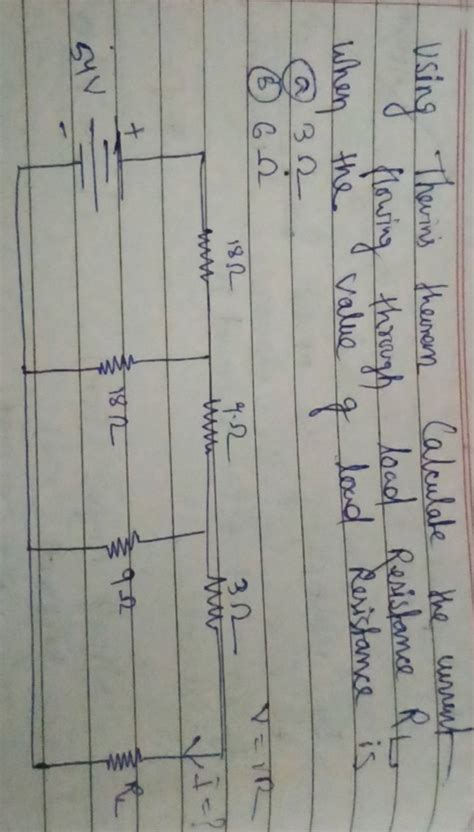 Using Thevin's theorem Calculate the current
flowing through load Resistance RL
when the value of load Resistance is
(a) 3 Ω
(b) 6 Ω
V = IR
54V
+
-
18Ω
4Ω
3Ω
18Ω
9Ω
RL
I = ?